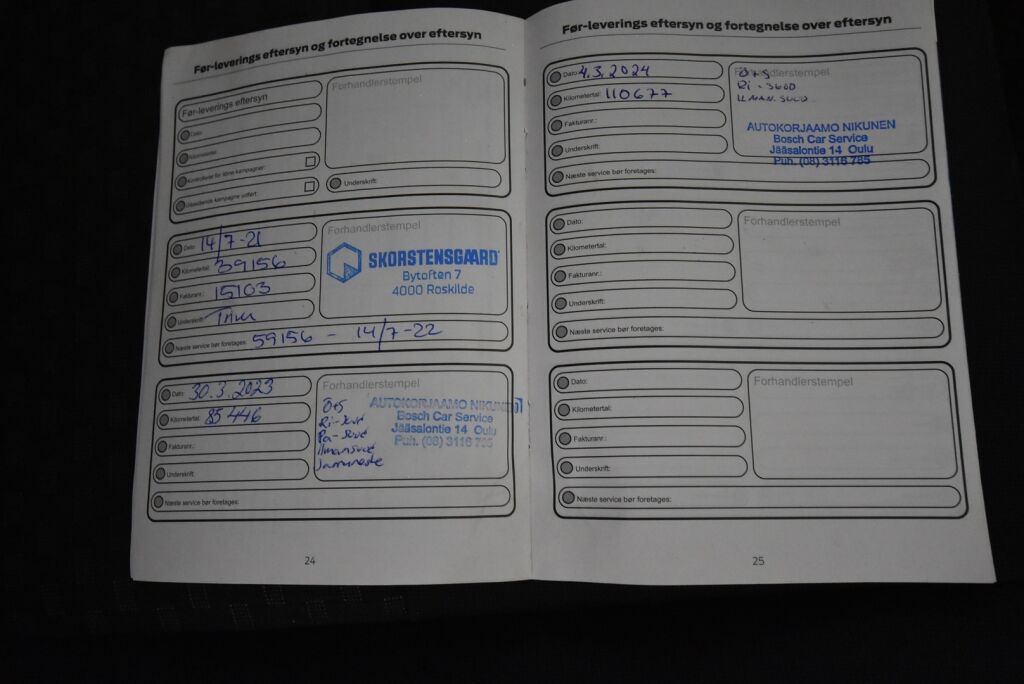 Før-leverings eftersyn og fortegnelse over eftersyn
Før-leverings eftersyn
Dato:
Kilometertal:
Kontrolleret for åbne kampagner:
Udestående kampagne udført:
Forhandlerstempel
Underskrift:
Dato: 14/7-21
Kilometertal: 39156
Fakturanr.: 15103
Underskrift:
Næste service bør foretages: 59156 - 14/7-22
Forhandlerstempel
SKORSTENSGAARD
Bytoften 7
4000 Roskilde
Dato: 30.3.2023
Kilometertal: 85446
Fakturanr.:
Underskrift:
Næste service bør foretages:
Forhandlerstempel
Ö+S
Ri-suod
Pa-suod
ilmansuod
Jarruneste
AUTOKORJAAMO NIKUNEN
Bosch Car Service
Jääsalontie 14 Oulu
Puh. (08) 3116 785
24
Før-leverings eftersyn og fortegnelse over eftersyn
Dato: 4.3.2024
Kilometertal: 110677
Fakturanr.:
Underskrift:
Næste service bør foretages:
Forhandlerstempel
Ö+S
Ri-suod
ILMAN.SUOD
AUTOKORJAAMO NIKUNEN
Bosch Car Service
Jääsalontie 14 Oulu
Puh. (08) 3116 785
Dato:
Kilometertal:
Fakturanr.:
Underskrift:
Næste service bør foretages:
Forhandlerstempel
Dato:
Kilometertal:
Fakturanr.:
Underskrift:
Næste service bør foretages:
Forhandlerstempel
25